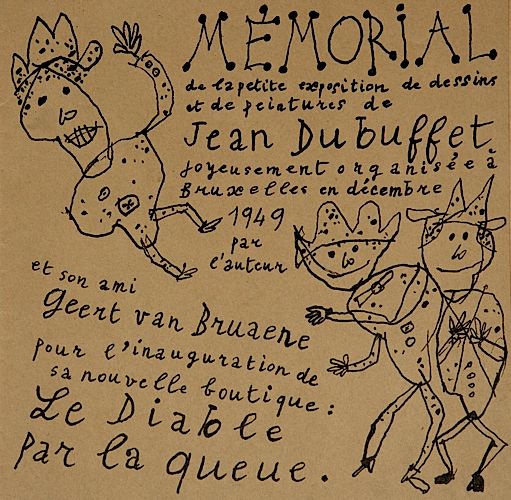 MÉMORIAL
de la petite exposition de dessins
et de peintures de
Jean Dubuffet
joyeusement organisée à
Bruxelles en décembre
1949
par
l'auteur
et son ami
geert van Bruaene
pour l'inauguration de
sa nouvelle boutique :
Le Diable
par la queue .